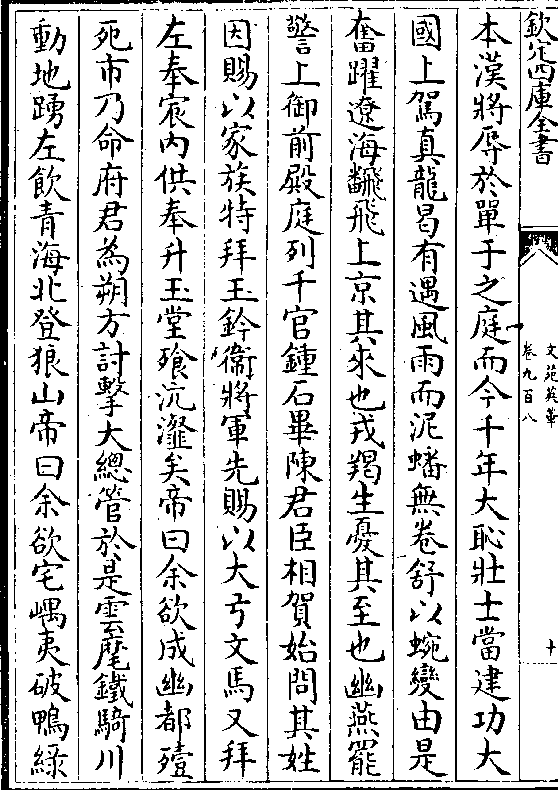 欽定四庫全書
文苑英華
卷九百八
十
本漢將辱於單于之庭而今千年大恥壯士當建功大
國上駕真龍曷有遇風雨而泥蟠無卷舒以蜿變由是
奮躍遼海飜飛上京其來也戎羯生憂其至也幽燕罷
警上御前殿庭列千官鍾石畢陳君臣相賀始問其姓
因賜以家族特拜玉鈐衞將軍先賜以大弓文馬又拜
左奉宸內供奉升玉堂飡沆瀣矣帝曰余欲成幽都殪
死市乃命府君為朔方討擊大總管於是雲麾鐵騎川
動地踴左飲青海北登狼山帝曰余欲宅嵎夷破鴨綠